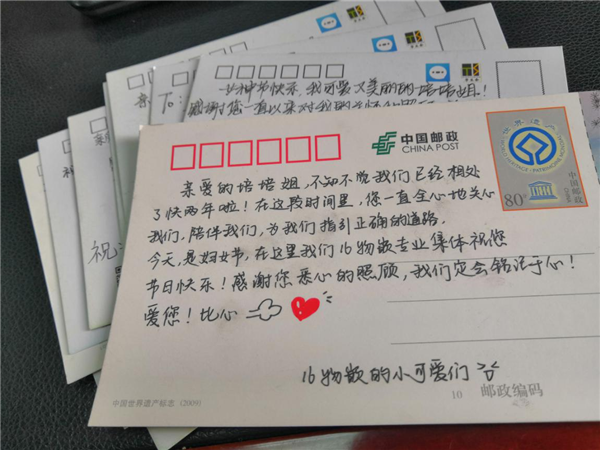 女神节快乐,我可爱又美丽的培培姐!
感谢您一直以来对我的关怀
中国邮政
CHINA POST
80分
中国邮政
CHINA
亲爱的培培姐,不知不觉我们已经相处
了快两年啦!在这段时间里,您一直全心地关心
我们,陪伴我们,为我们指引正确的道路.
今天,是妇女节,在这里我们16物数专业集体祝您
节日快乐!感谢您悉心的照顾,我们定会铭记于心!
爱您!比心
16物数的小可爱们
中国世界遗产标志(2009)
10 邮政编码